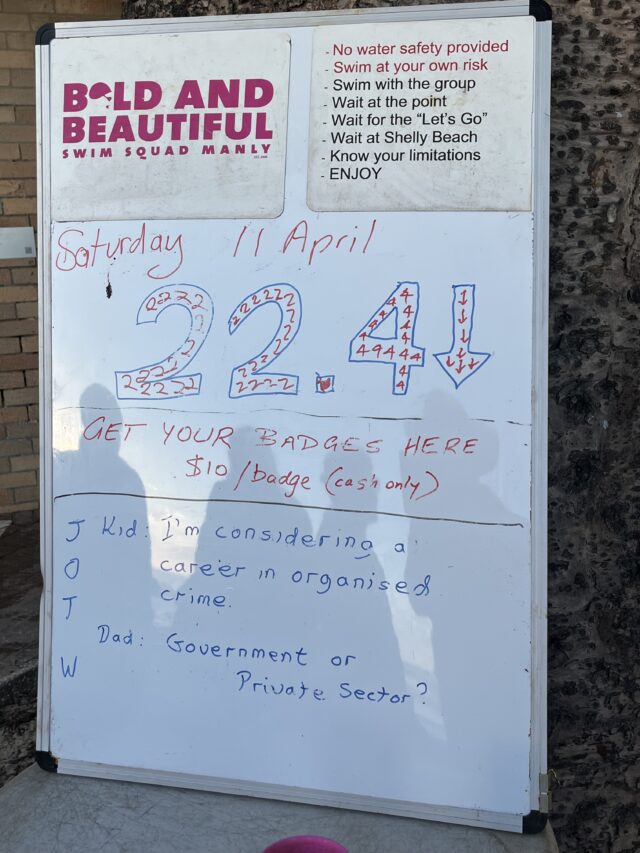 BOLD AND
BEAUTIFUL
SWIM SQUAD MANLY
- No water safety provided
- Swim at your own risk
- Swim with the group
- Wait at the point
- Wait for the “Let's Go”
- Wait at Shelly Beach
- Know your limitations
- ENJOY
Saturday 11 April
22.4↓
GET YOUR BADGES HERE
$10/badge (cash only)
JOTW
Kid: I'm considering a
career in organised
crime.
Dad: Government or
Private Sector?